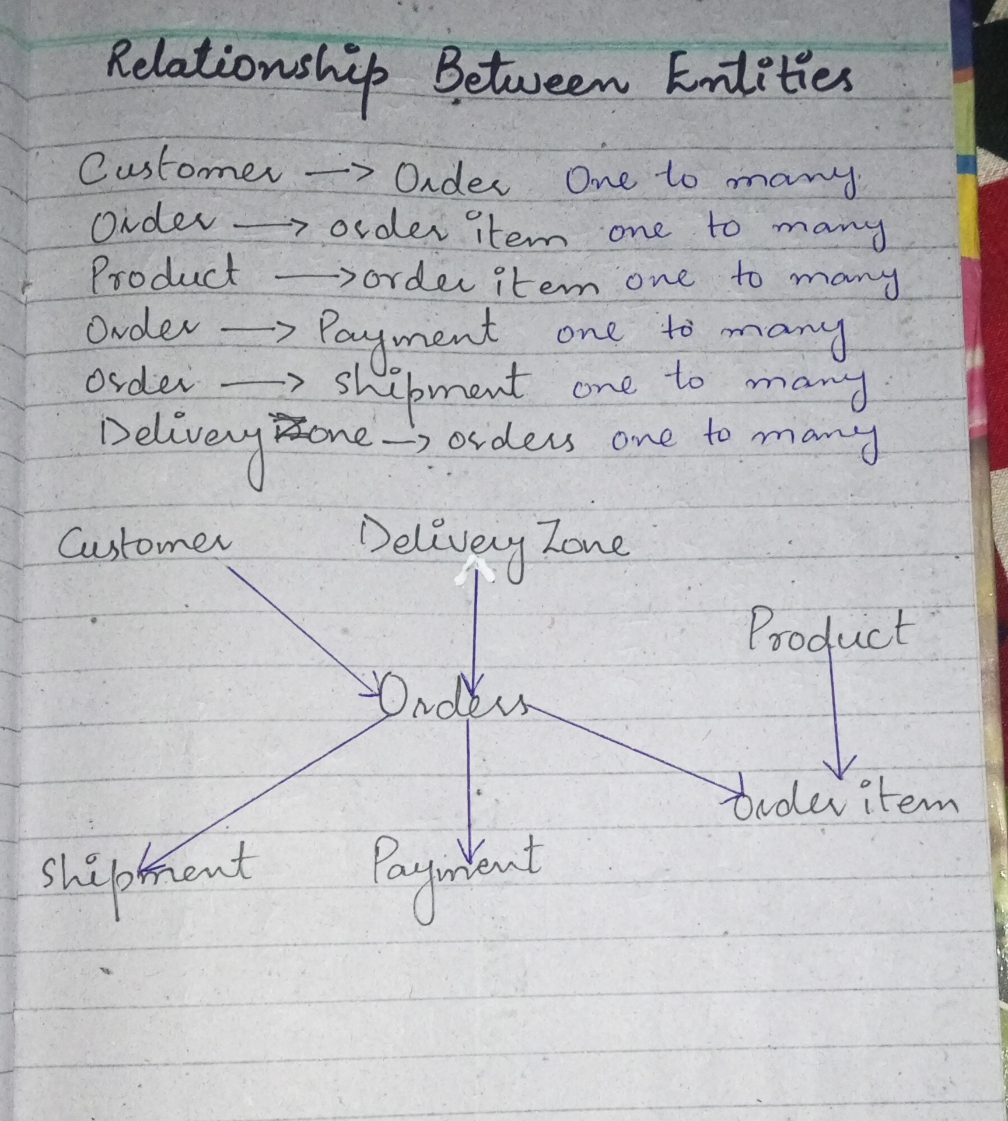 Relationship Between Entities
Customer —> Order One to many.
Order —> order item one to many
Product —> order item one to many
Order —> Payment one to many
Order —> shipment one to many.
Delivery Zone —> orders one to many
Customer Delivery Zone
Product
Orders
Order item
Shipment Payment